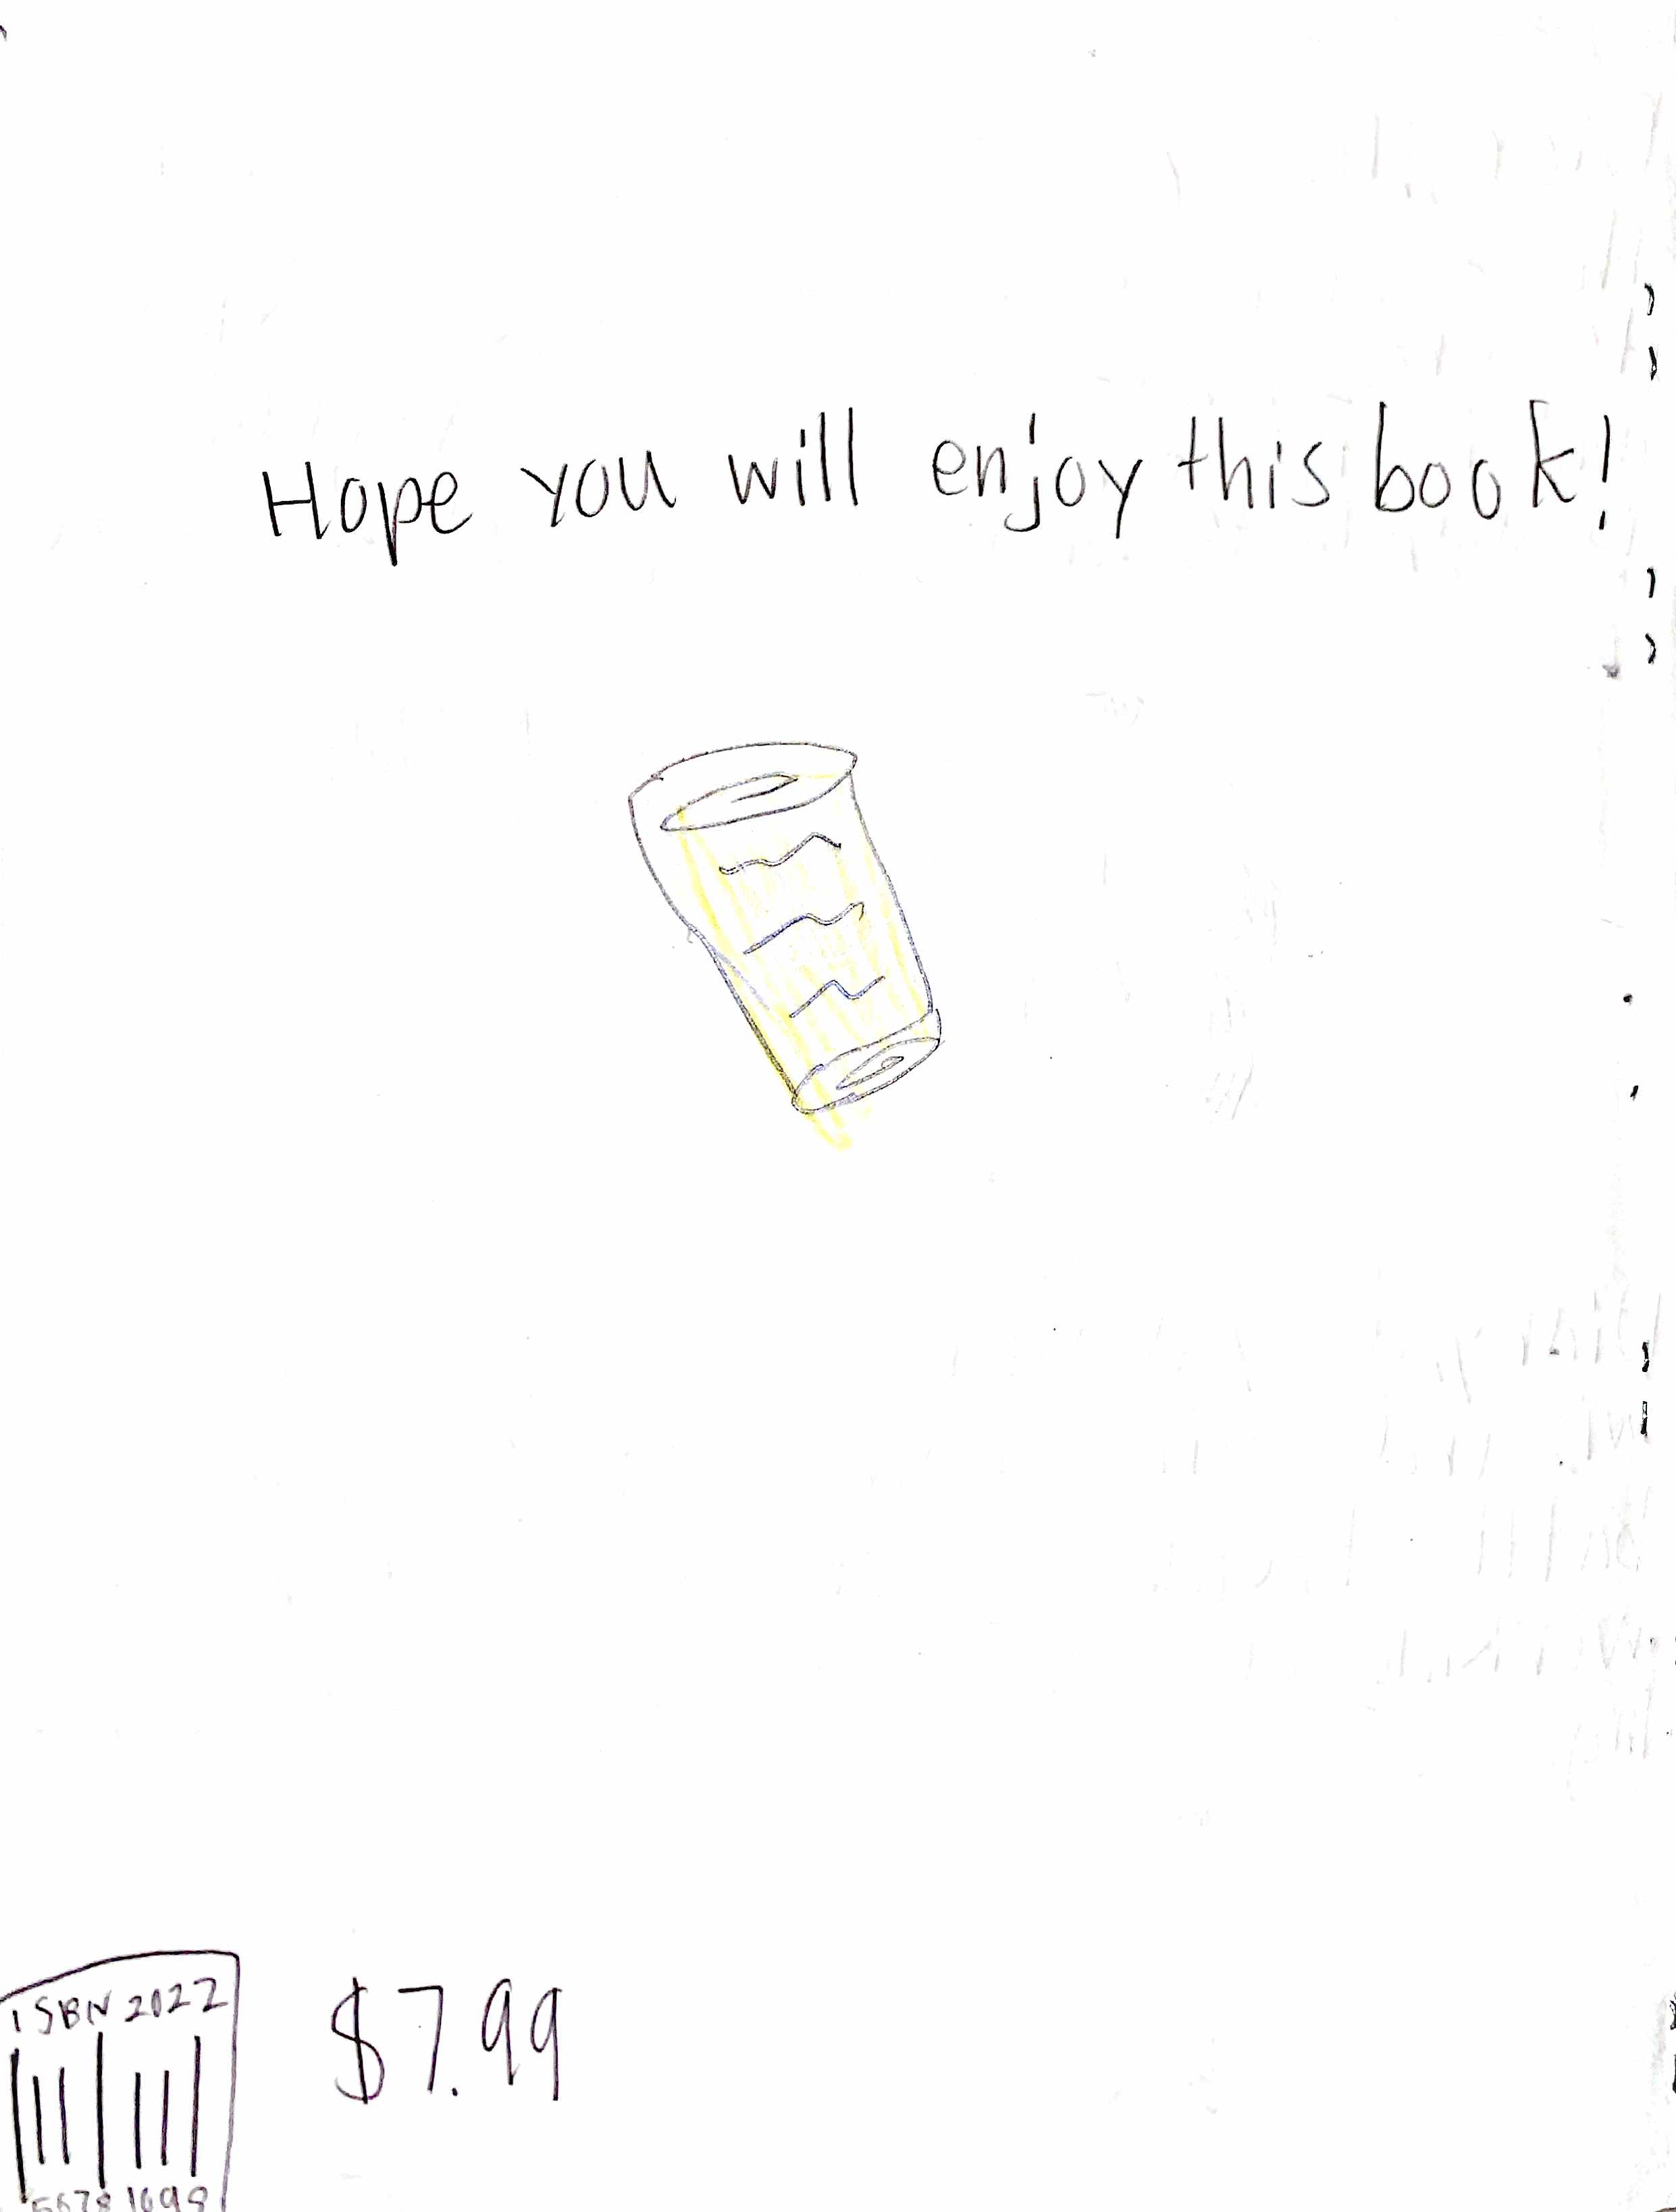 Hope you will enjoy this book!
ISBN 2022
$7.99